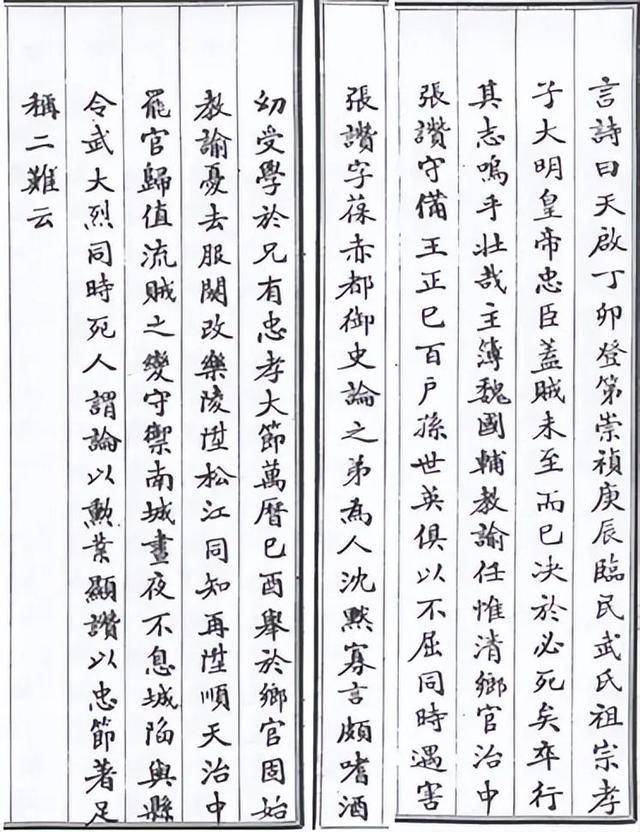 言詩曰天啟丁卯登第崇禎庚辰臨民武氏祖宗孝
子大明皇帝忠臣蓋賊未至而已决於必死矣卒行
其志嗚乎壯哉主簿魏國輔教諭任惟清鄉官治中
張讚守備王正己百戶孫世英俱以不屈同時遇害
張讚字葆赤都御史論之弟為人沈默寡言頗嗜酒
幼受學於兄有忠孝大節萬曆己酉舉於鄉官固始
教諭憂去服闋改樂陵陞松江同知再陞順天治中
罷官歸值流賊之變守禦南城晝夜不息城陷與縣
令武大烈同時死人謂論以勲業顯讚以忠節著足
稱二難云